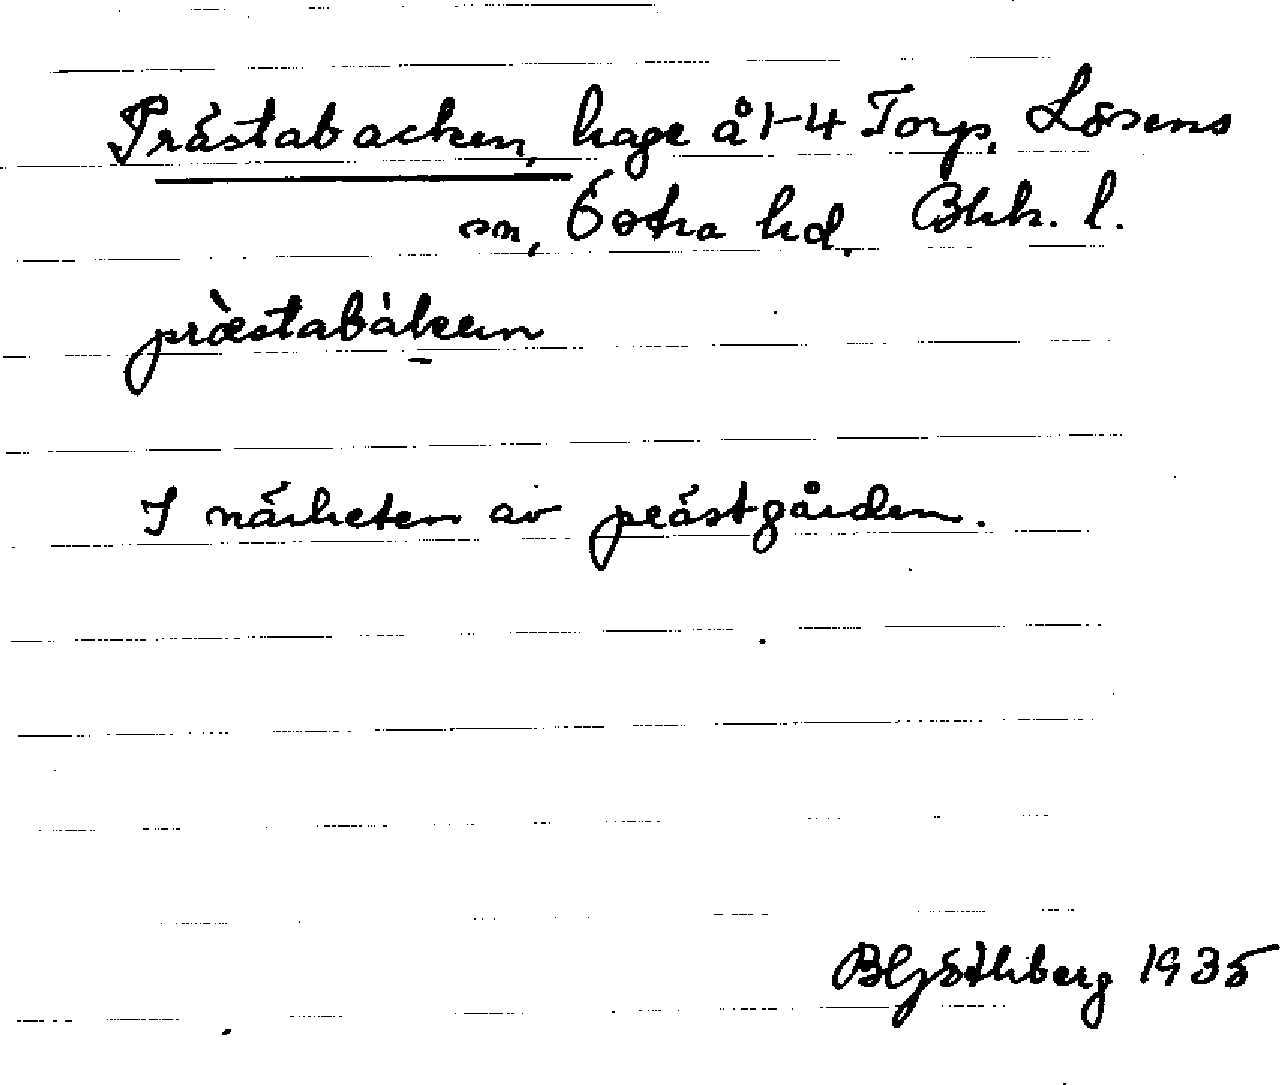 Prästabacken, hage å 1-4 Torp, Lösens
sn, Östra hd. Blek. l.
præ̀stabàken
I närheten av prästgården.
B Göthberg 1935